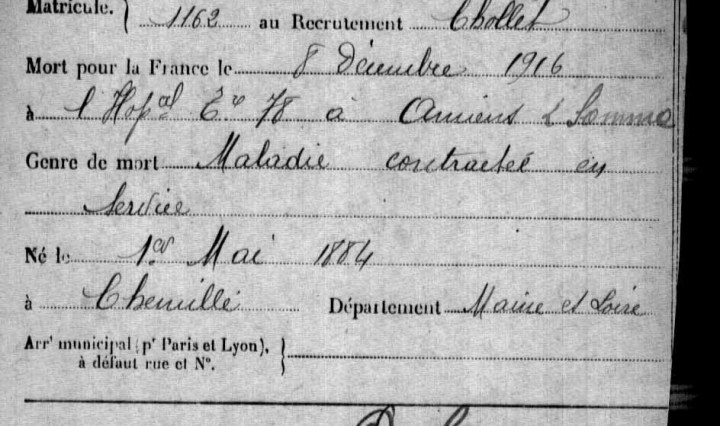 Matricule. { 1162 au Recrutement Chollet
Mort pour la France le 8 Décembre 1916
à l'Hopal Ere 78 à Amiens Somme
Genre de mort Maladie contractée en
service
Né le 1er Mai 1884
à Chemillé Département Maine et Loire
Arrt municipal (pr Paris et Lyon), }
à défaut rue et N°.